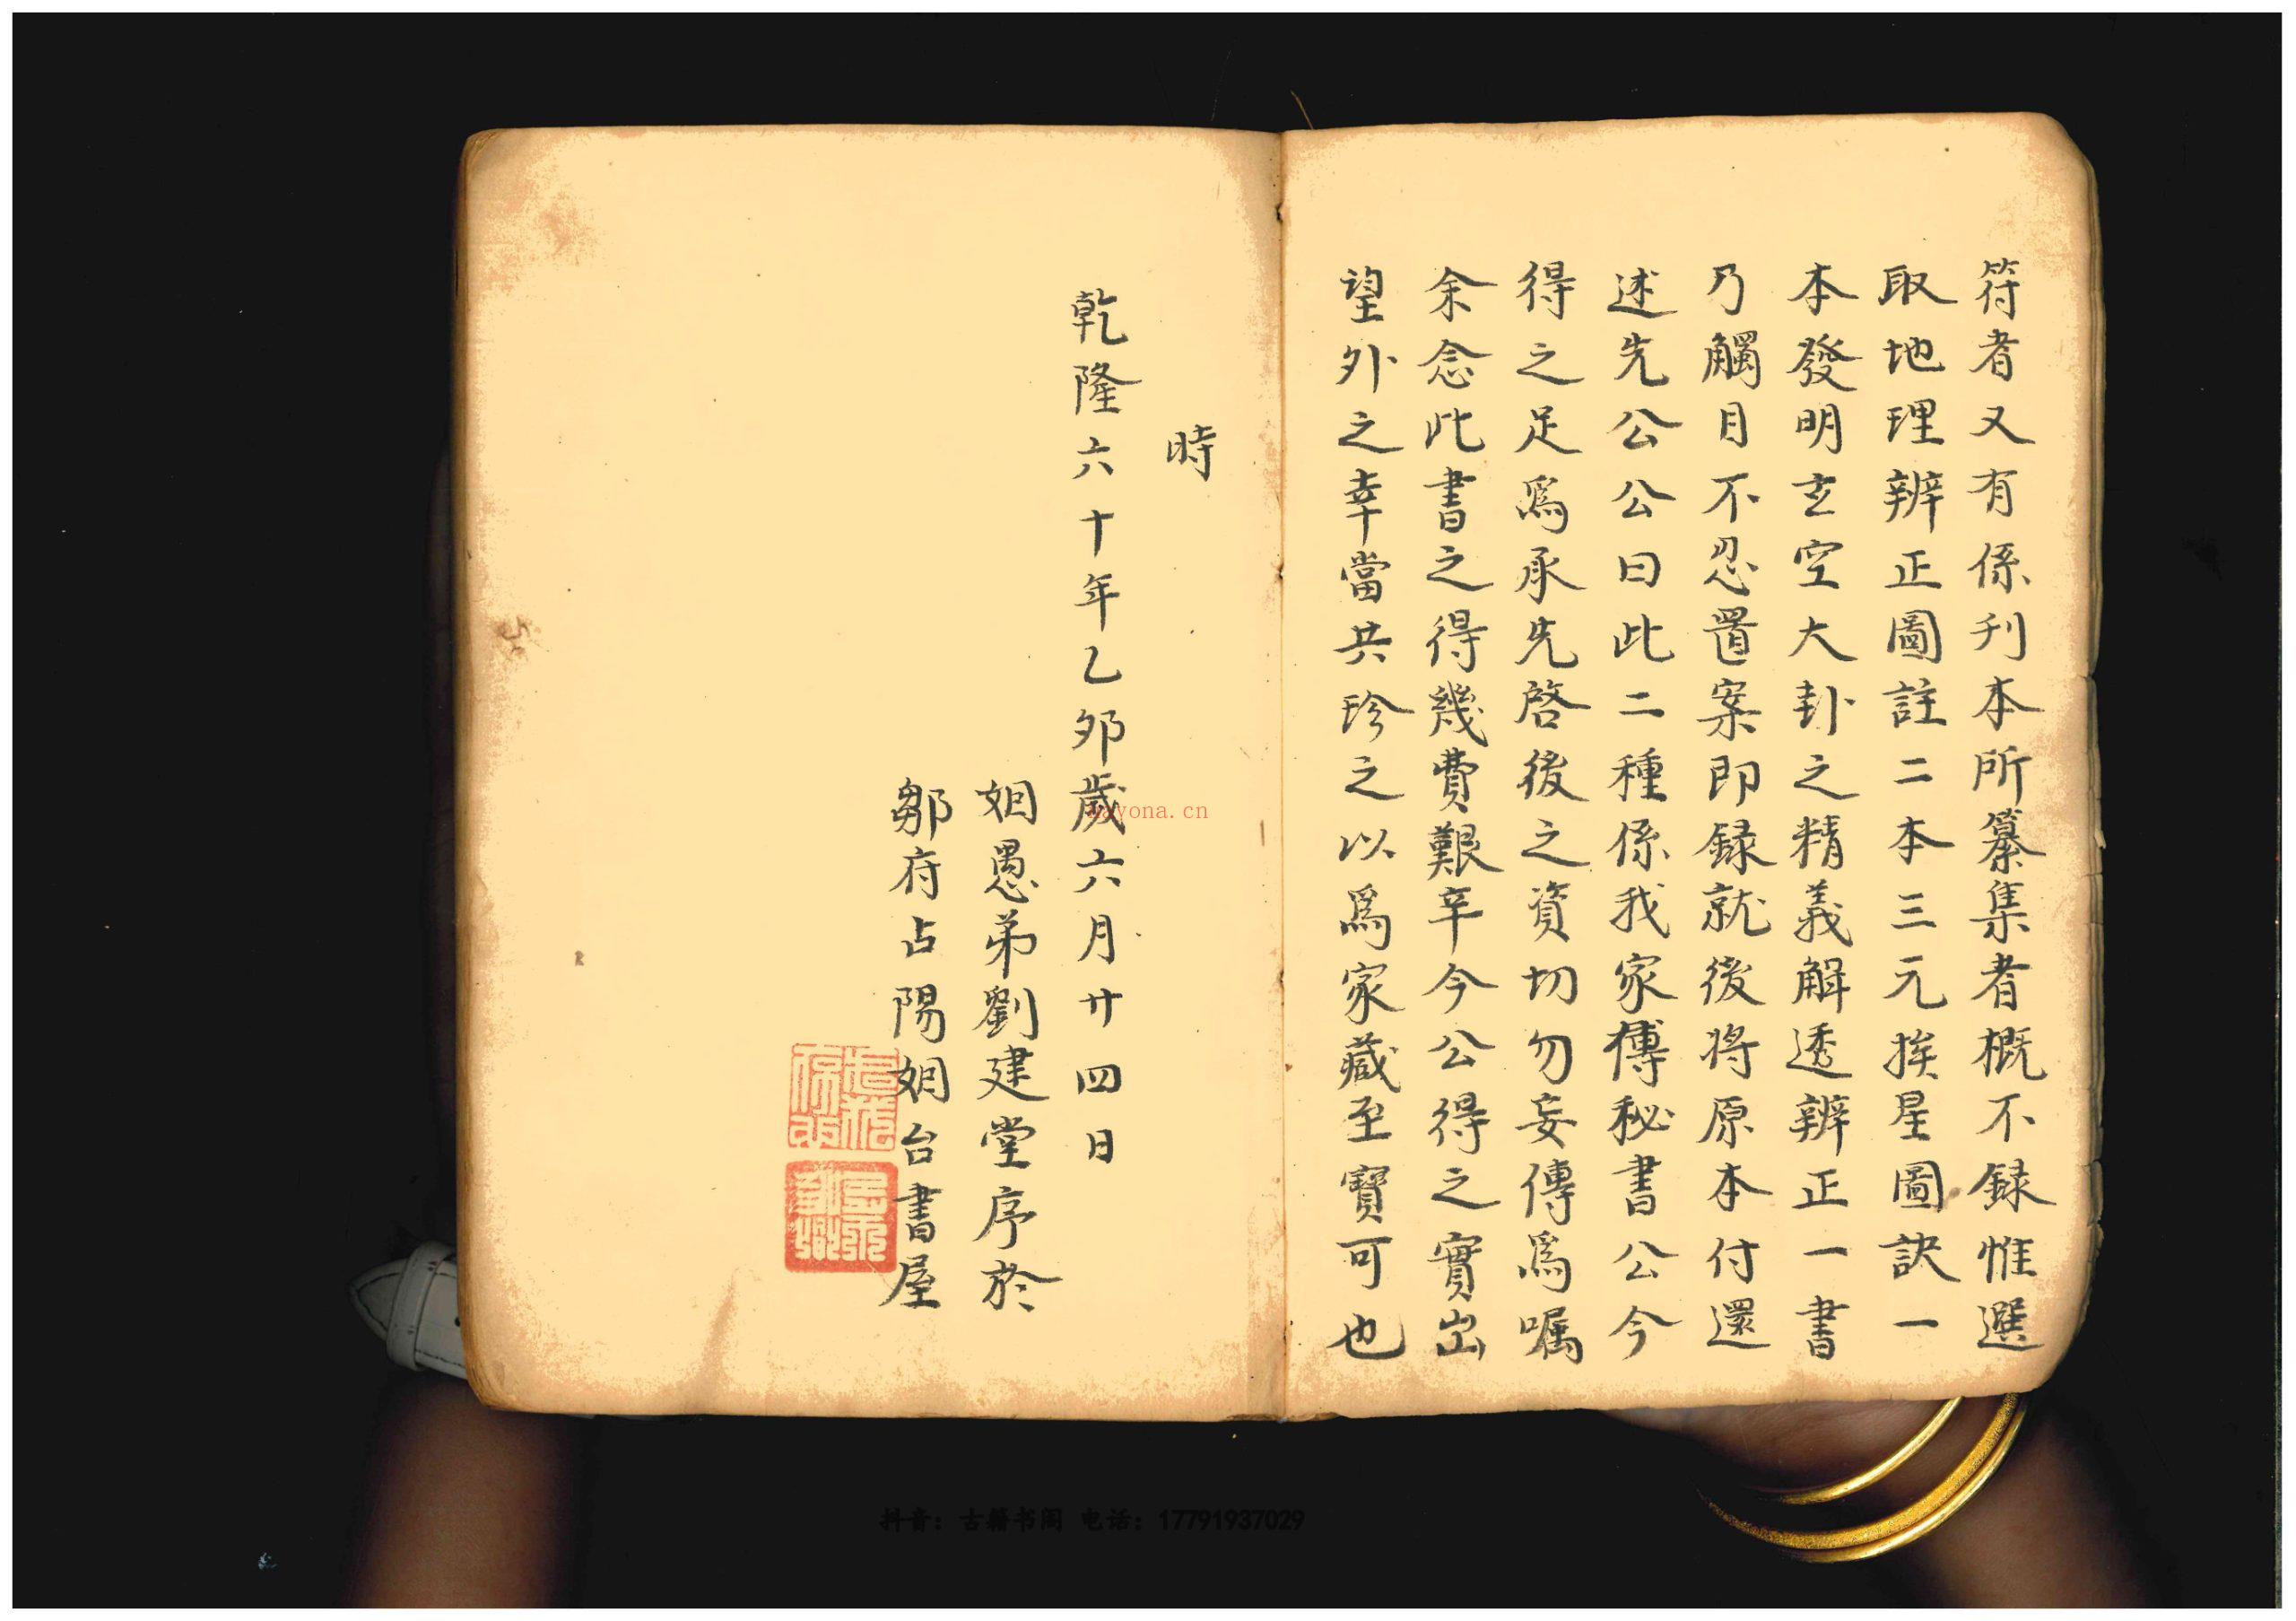 符者又有係刋本所纂集者概不録惟選
取地理辨正圖註二本三元挨星圖訣一
本發明玄空大卦之精義觧透辨正一書
乃觸目不忍置案即録就後将原本付還
述先公公曰此二種係我家傅秘書公今
得之足爲承先啓後之資切勿妄傳爲嘱
余念此書之得幾費艱辛今公得之實出
望外之幸當共珍之以爲家藏至寶可也
時
乾隆六十年乙夘歲六月廿四日
姻愚弟劉建堂序於
鄒府占陽姻台書屋
yona.cn
抖音：古籍书阁 电话：17791937029